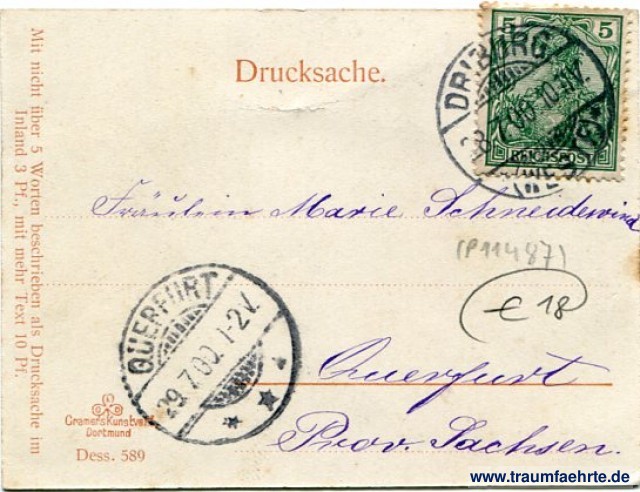 Mit nicht über 5 Worten beschrieben als Drucksache im
Inland 3 Pf., mit mehr Text 10 Pf.
Drucksache.
5 5
REICHSPOST
DRIBURG
Fräulein Marie Schneidewind
(P11487)
€ 18
QUERFURT
29.7.00. 1-2V.
Querfurt
Prov. Sachsen.
Cramers Kunstverl.
Dortmund
Dess. 589
www.traumfaehrte.de